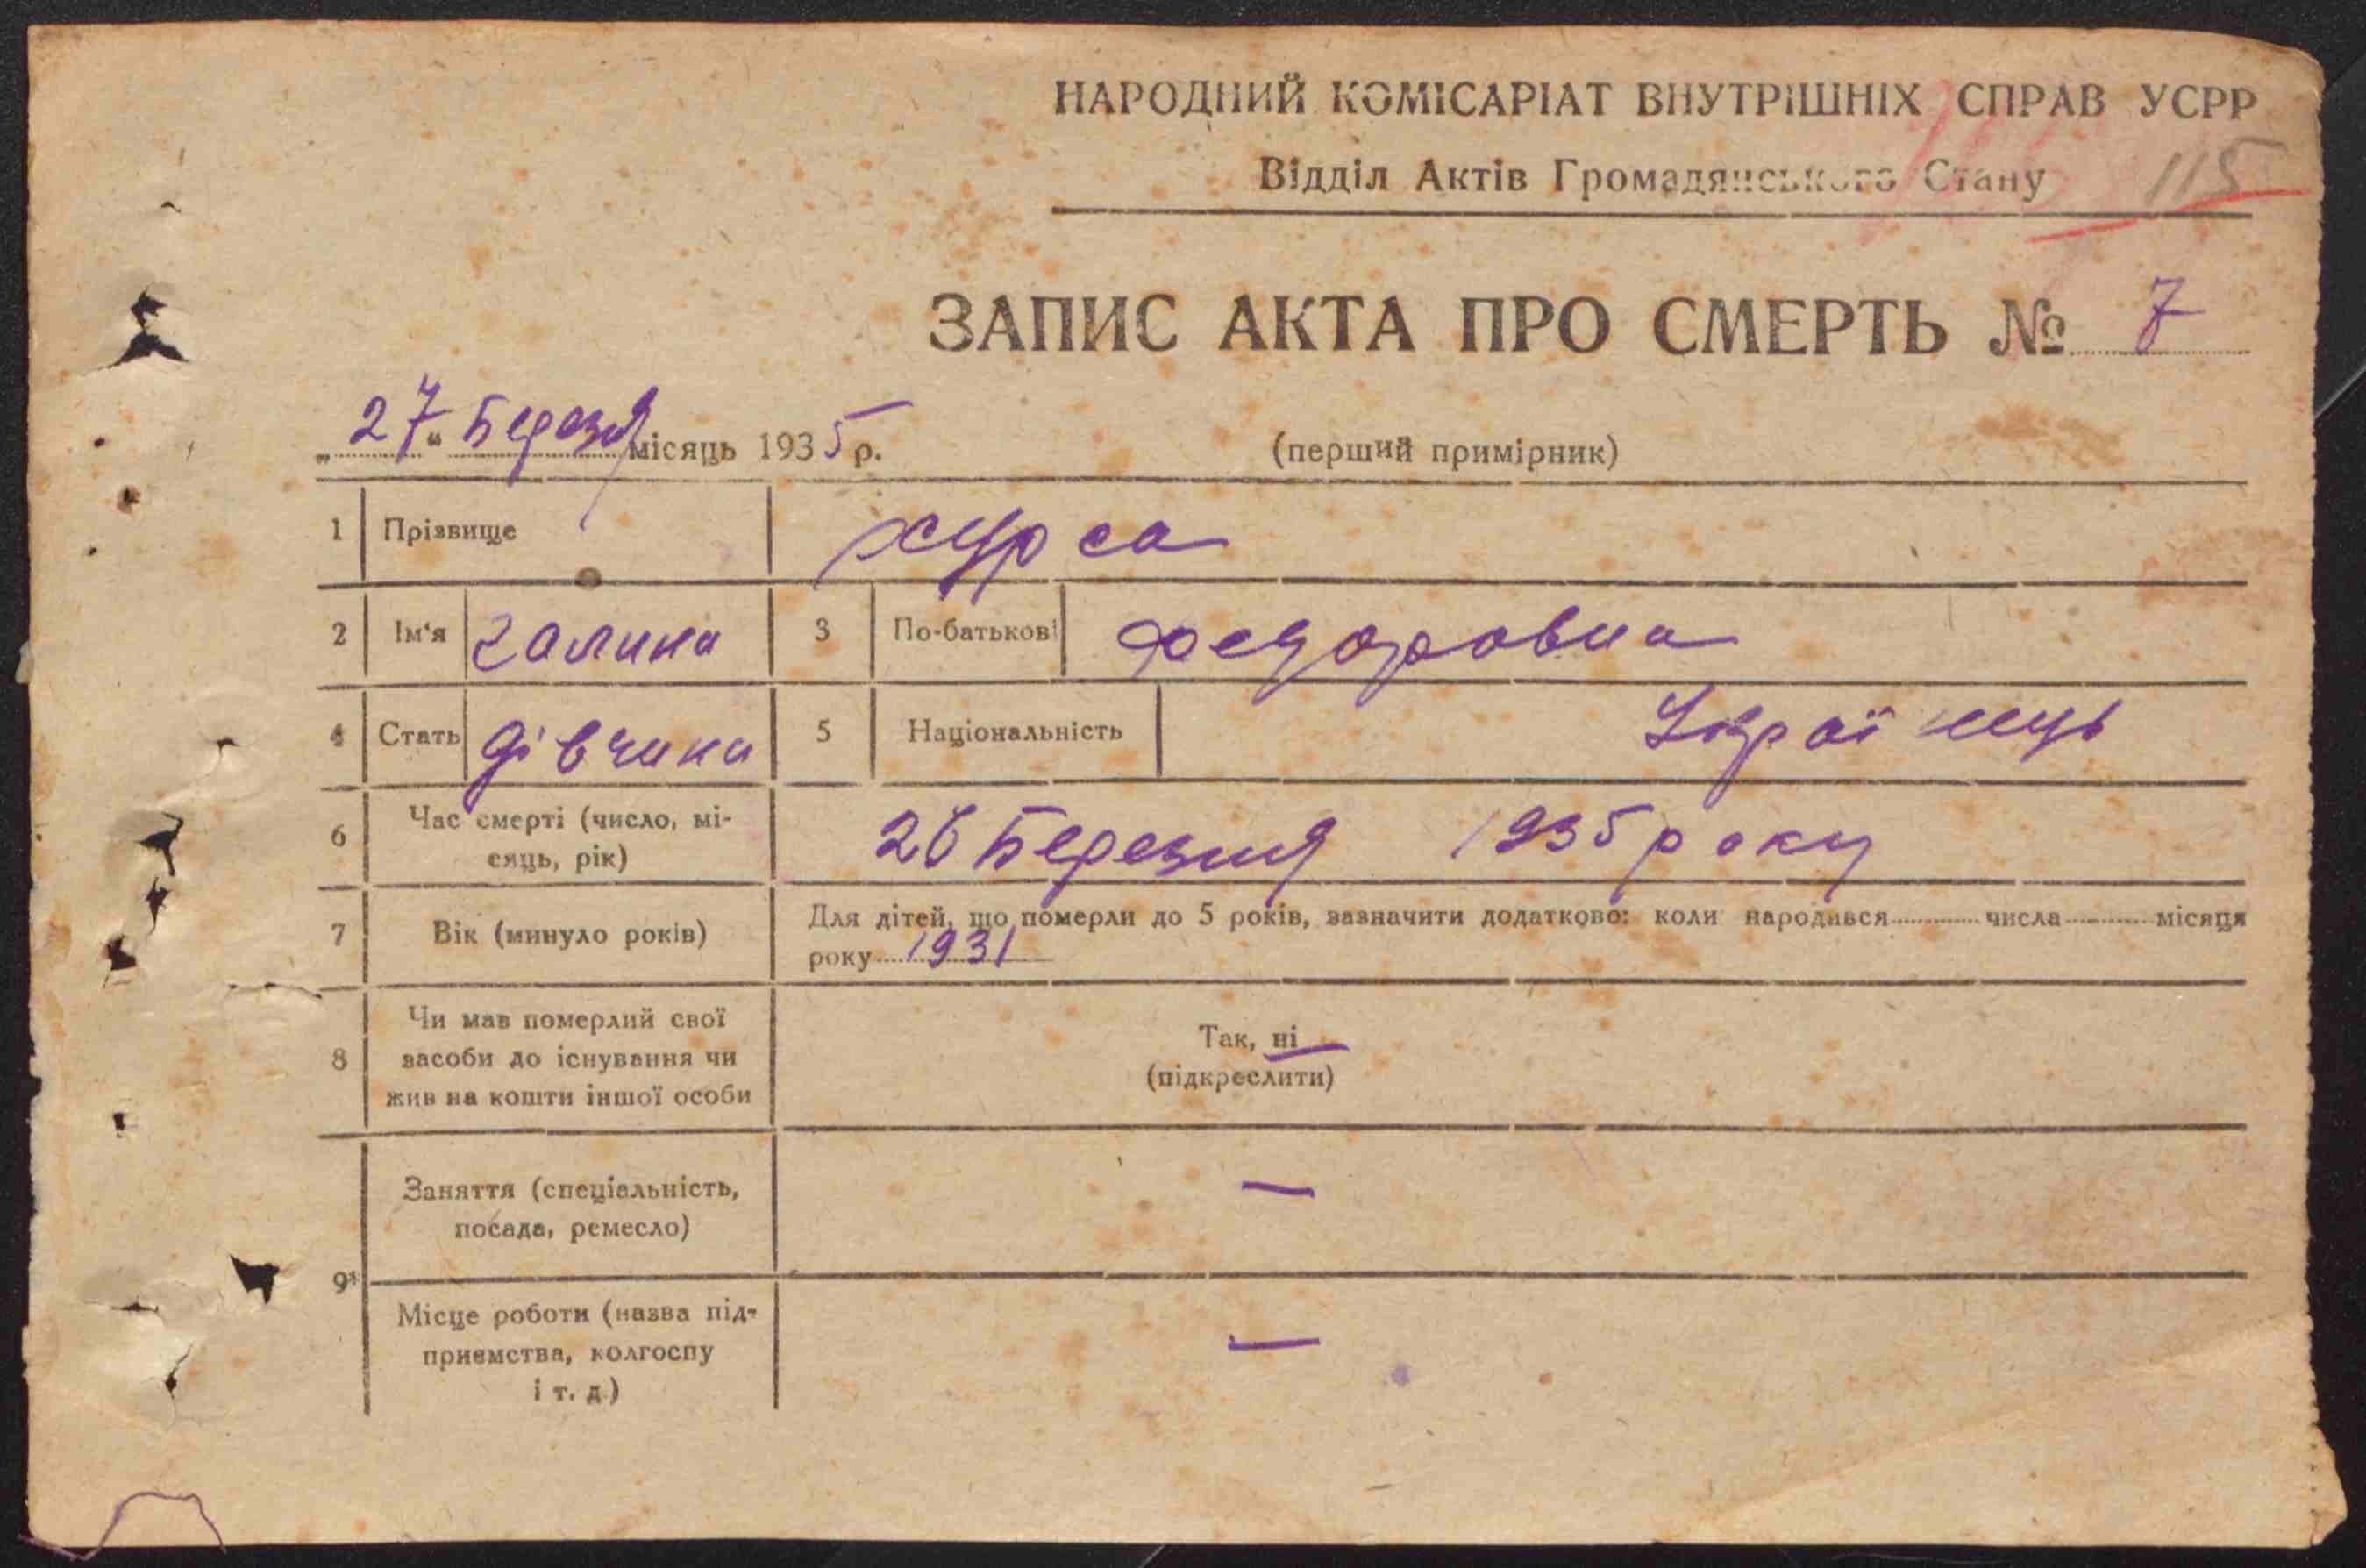 НАРОДНИЙ КОМІСАРІАТ ВНУТРІШНІХ СПРАВ УСРР
Відділ Актів Громадянського Стану 115
ЗАПИС АКТА ПРО СМЕРТЬ № 7
„27“ Березня місяць 1935 р. (перший примірник)
1 Прізвище Хурса
2 Ім'я Галина 3 По-батькові Федоровна
4 Стать дівчина 5 Національність Українць
6 Час смерті (число, мі-
сяць, рік)
26 Березня 1935 року
7 Вік (минуло років)
Для дітей, що померли до 5 років, зазначити додатково: коли народився числа місяця
року 1931
8 Чи мав померлий свої
засоби до існування чи
жив на кошти іншої особи
Так, ні
(підкреслити)
9*
Заняття (спеціальність,
посада, ремесло)
—
Місце роботи (назва під-
приємства, колгоспу
і т. д.)
—